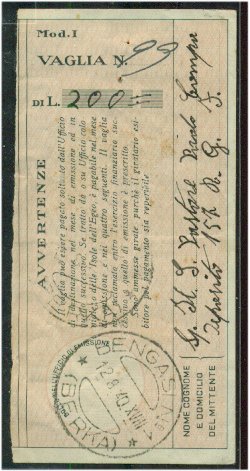 Mod. I
VAGLIA N. 99
DI L. 200
AVVERTENZE
Il vaglia può essere pagato soltanto dall'Ufficio
di destinazione nel mese di emissione ed in
quello successivo. Se tratto da o su Uffici colo
niali o delle Isole dell'Egeo, è pagabile nel mese
di emissione e nei quattro seguenti. Il vaglia
non reclamato entro l'esercizio finanziario suc-
cessivo a quello di emissione è prescritto.
Sono ammesse girate purchè il giratario esi-
bitore pel pagamento sia reperibile.
BOLLO DELL'UFFICIO DI EMISSIONE
BENGASI
12.8.40.XVIII
(BERKA)
NOME COGNOME
E DOMICILIO
DEL MITTENTE